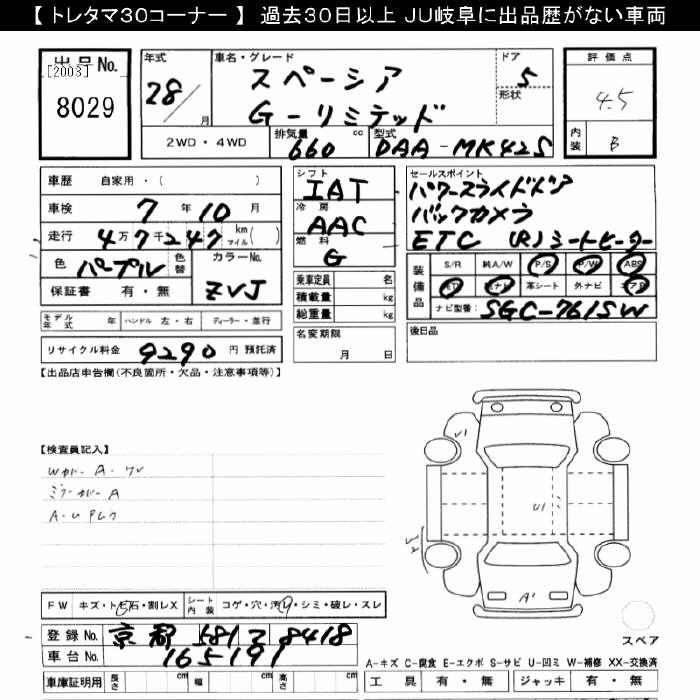 【 トレタマ30コーナー 】 過去30日以上 JU岐阜に出品歴がない車両
出品No.
[2003]
8029
年式
28/
月
車名・グレード
スペーシア
G-リミテッド
ドア
5
形状
評価点
4.5
内装
B
2WD・4WD
排気量
660 cc
型式
DAA-MK42S
車歴 自家用・( )
車検 7年10月
走行 4万7千247 km マイル( )
色 パープル
色替
カラーNo.
ZVJ
保証書 有・無
シフト
IAT
冷房
AAC
燃料
G
乗車定員 名
積載量 kg
総重量 kg
名変期限
月 日
セールスポイント
パワースライドドア
バックカメラ
ETC (R)シートヒーター
装備品
S/R 純A/W P/S P/W ABS
革シート 外ナビ
ナビ型番: SGC-761SW
後日品
モデル年式 年 ハンドル 左・右 ディーラー・並行
リサイクル料金 9290 円 預託済
【出品店申告欄(不良箇所・欠品・注意事項等)】
【検査員記入】
Wカバー A・ワレ
ミラーカバー A
U1
U1
A1
FW キズ・トビ石・割レX シート内装 コゲ・穴・汚レ・シミ・破レ・スレ
スペア
登録No. 京都 581 8418
車台No. 165191
A-キズ C-腐食 E-エクボ S-サビ U-凹ミ W-補修 XX-交換済
車庫証明用 長さ cm 幅 cm 高さ cm
工具 有・無 ジャッキ 有・無